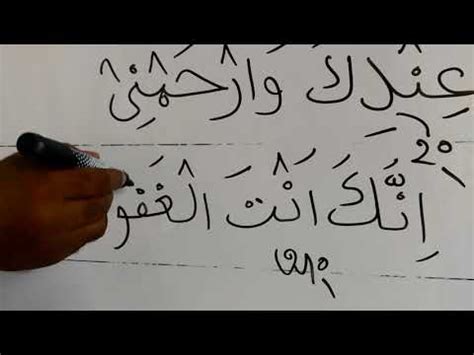 عِنْدِكَ وَارْحَمْنِىْ
اِنَّكَ اَنْتَ الْغَفُو